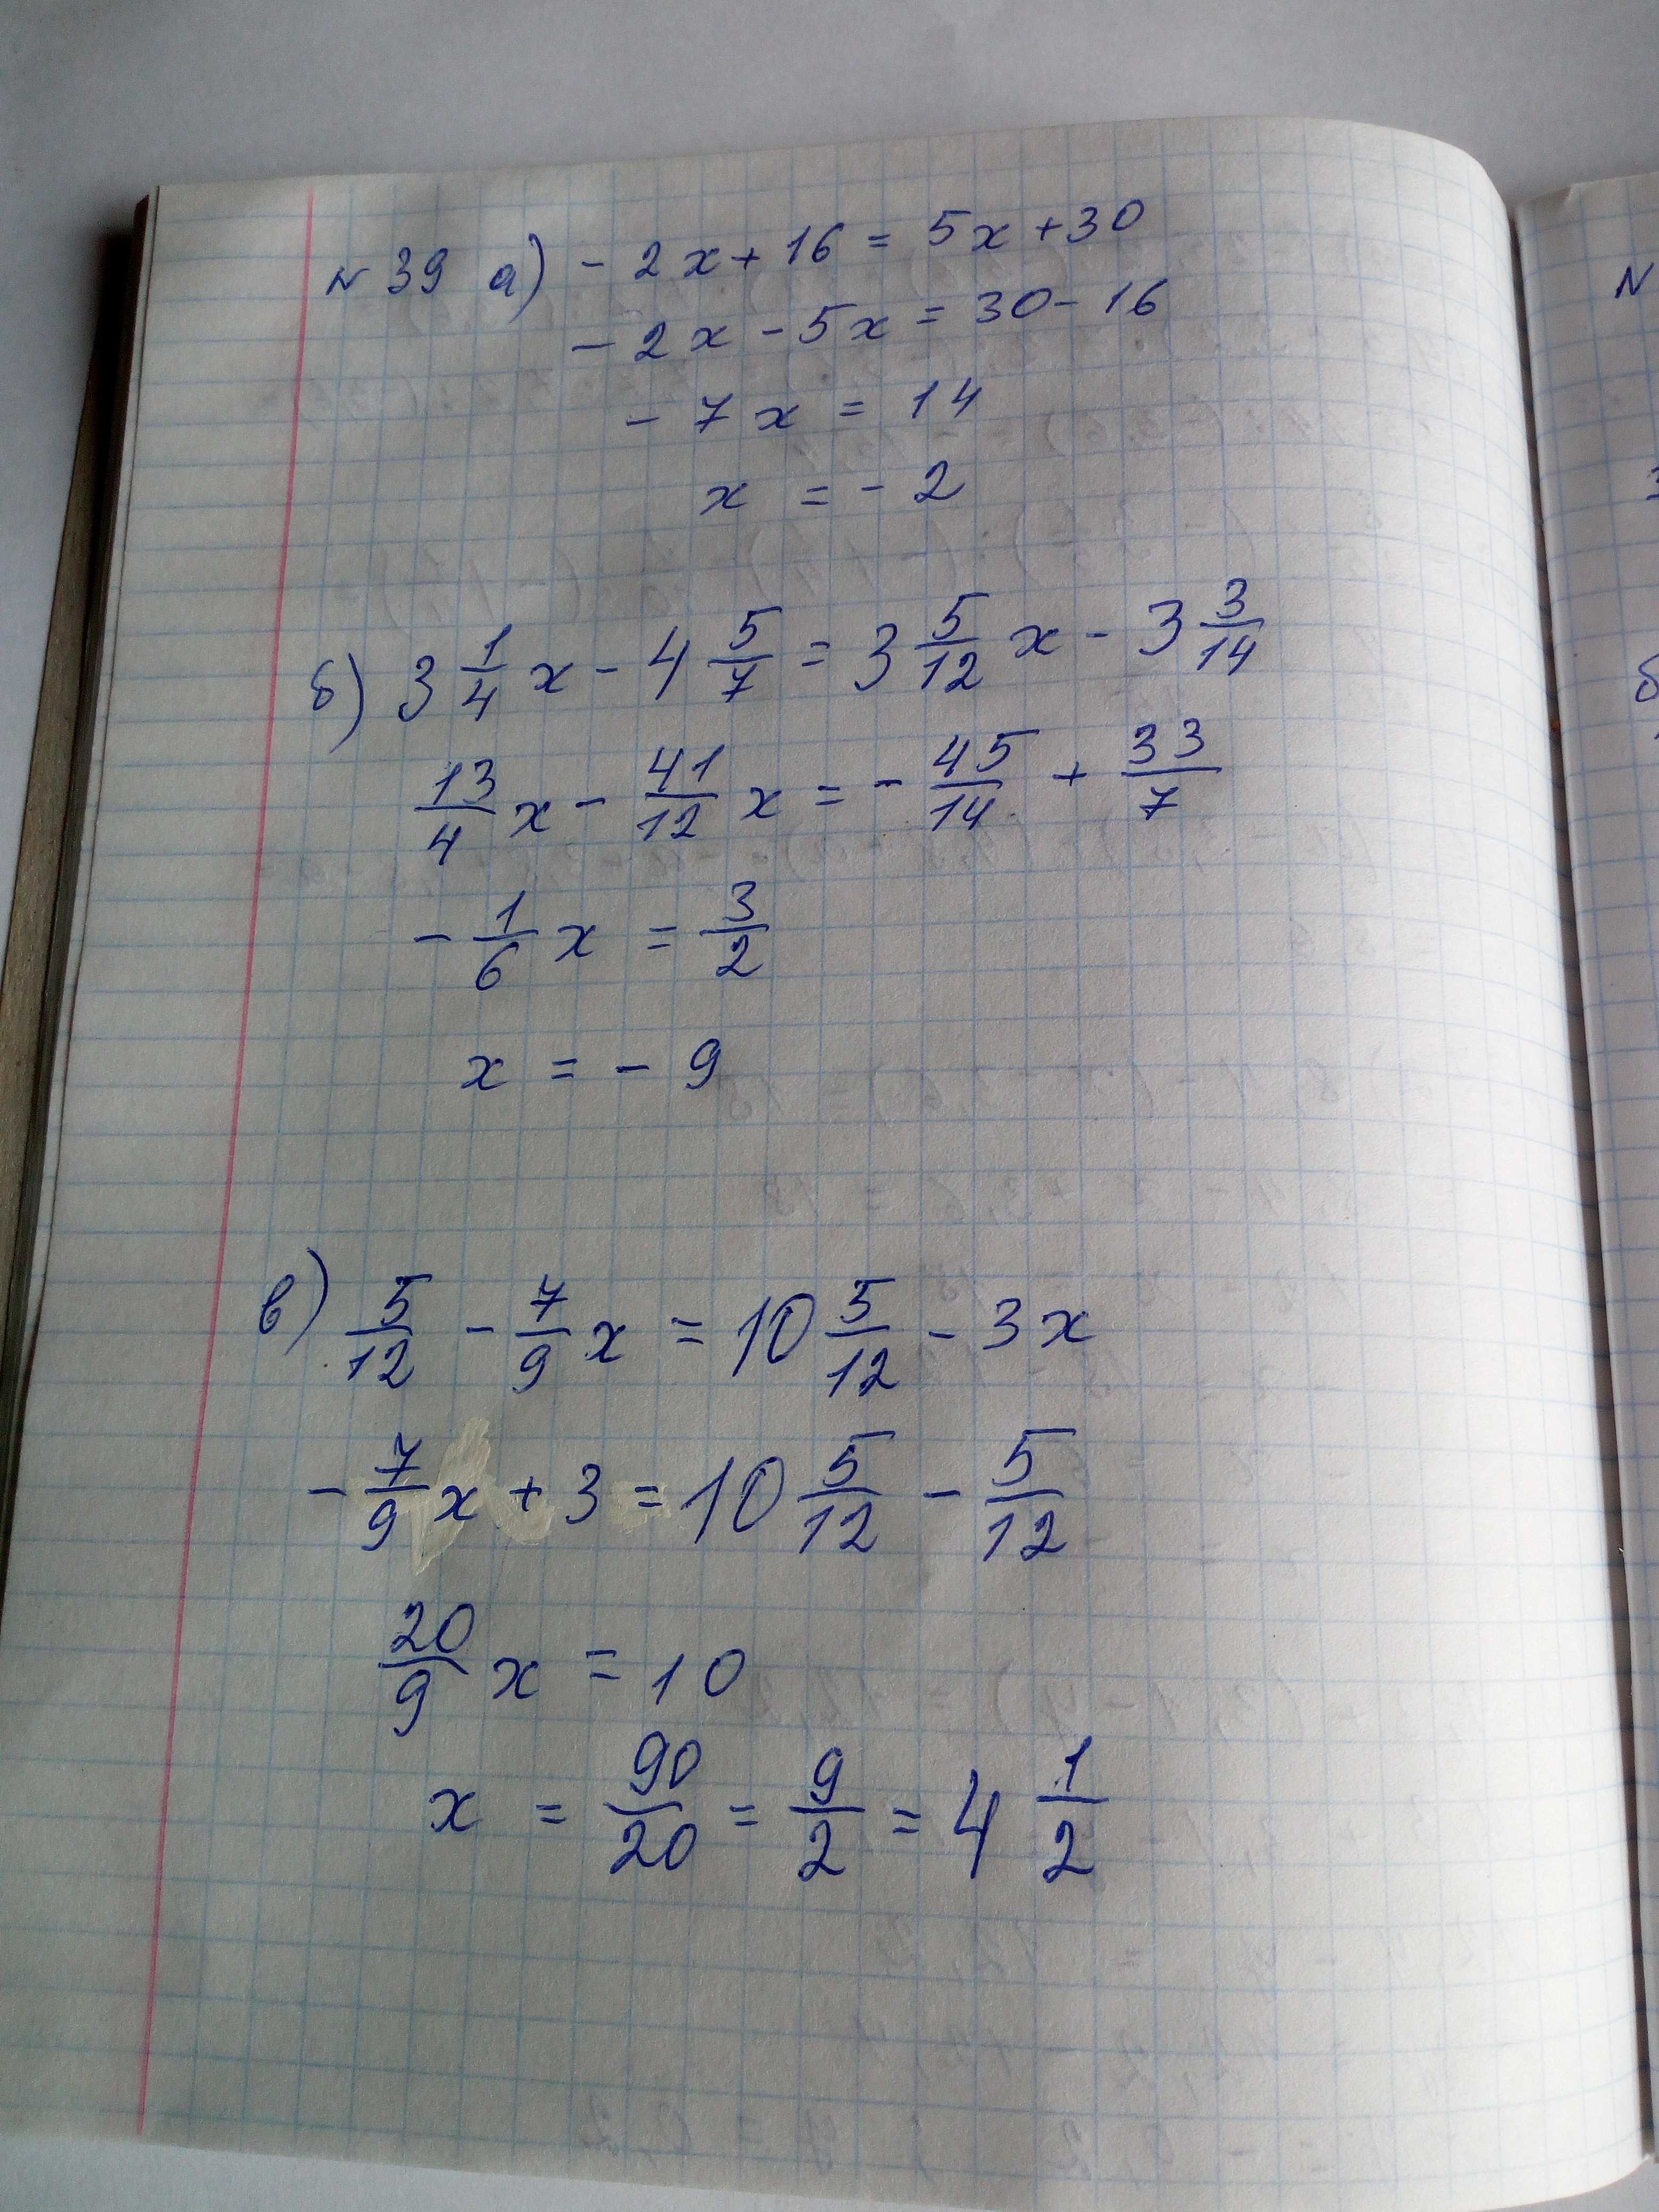 N 39 а) - 2x + 16 = 5x + 30
- 2x - 5x = 30 - 16
- 7x = 14
x = - 2
б) 3 1/4 x - 4 5/7 = 3 5/12 x - 3 3/14
13/4 x - 41/12 x = - 45/14 + 33/7
- 1/6 x = 3/2
x = - 9
в) 5/12 - 7/9 x = 10 5/12 - 3x
- 7/9 x + 3 = 10 5/12 - 5/12
20/9 x = 10
x = 90/20 = 9/2 = 4 1/2
N
б